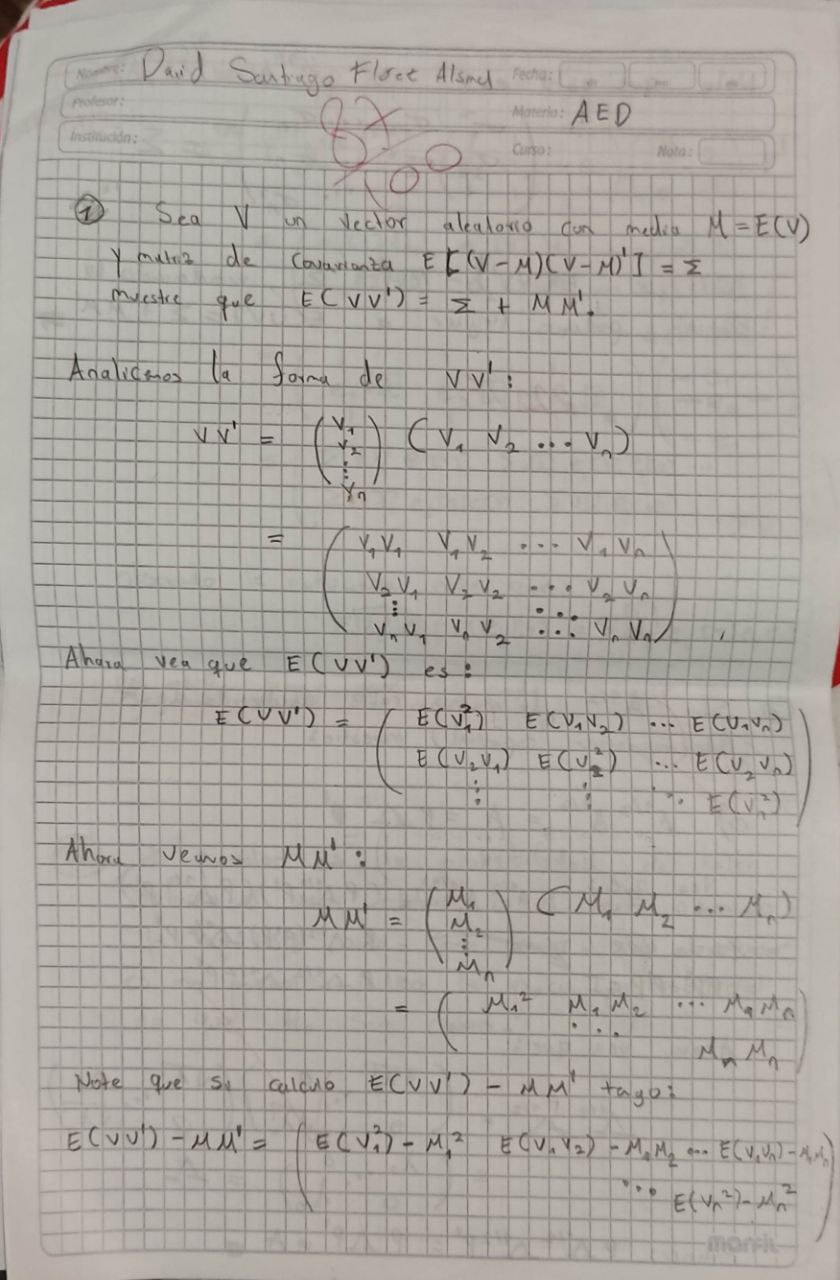 Nombre: David Santiago Florez Alsmel Fecha:
Profesor: Materia: AED
Institución: Curso: Nota:
87/100
① Sea V un vector aleatorio con media M = E(V)
y matriz de covarianza E[(V-M)(V-M)'] = Σ
muestre que E(VV') = Σ + MM'.
Analicemos la forma de VV':
VV' = (V₁ V₂ ⋮ Vₙ) (V₁ V₂ ... Vₙ)
= ( V₁V₁ V₁V₂ ... V₁Vₙ
V₂V₁ V₂V₂ ... V₂Vₙ
⋮
VₙV₁ VₙV₂ ... VₙVₙ ) ,
Ahora vea que E(VV') es:
E(VV') = ( E(V₁²) E(V₁V₂) ... E(V₁Vₙ)
E(V₂V₁) E(V₂²) ... E(V₂Vₙ)
⋮ ⋮ ⋱ E(Vₙ²) )
Ahora veamos MM':
MM' = (M₁ M₂ ⋮ Mₙ) (M₁ M₂ ... Mₙ)
= ( M₁² M₁M₂ ... M₁Mₙ
⋱
MₙMₙ )
Note que si calculo E(VV') - MM' tengo:
E(VV') - MM' = ( E(V₁²) - M₁² E(V₁V₂) - M₁M₂ ... E(V₁Vₙ) - M₁Mₙ
⋱ E(Vₙ²) - Mₙ² )